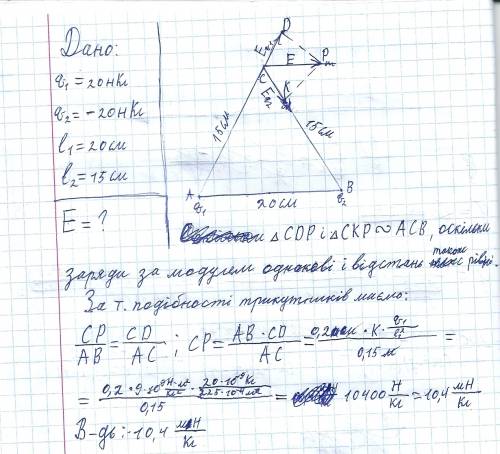 Дано:
q₁ = 20 нКл
q₂ = −20 нКл
l₁ = 20 см
l₂ = 15 см
E = ?
D
E q₁
E
P
C
E q₂
K
15 см
15 см
A
q₁
20 см
B
q₂
△CDP і △CKP ∾ ACB, оскільки
заряди за модулем однакові і відстані також рівні.
За т. подібності трикутників маємо:
CP/AB = CD/AC ; CP = AB · CD/AC = 0,2 м · K · q₁/l₂²/0,15 м =
= 0,2 · 9·10⁹ Н·м²/Кл² · 20·10⁻⁹ Кл/225·10⁻⁴ м²/0,15 = 10400 Н/Кл = 10,4 мН/Кл
В-дь: 10,4 мН/Кл